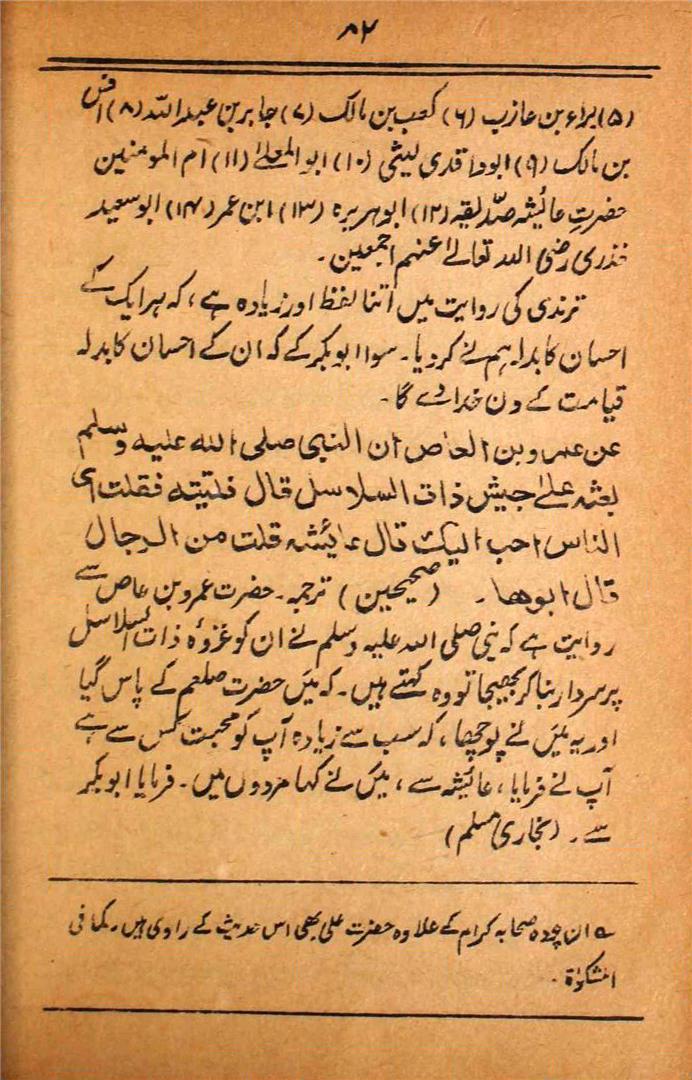 ۸۲
(۵) براء بن عازب (۶) کعب بن مالک (۷) جابر بن عبد اللہ (۸) انس
بن مالک (۹) ابو واقدی لیثی (۱۰) ابو المعلےٰ (۱۱) ام المومنین
حضرتِ عائشہ صدّیقہ (۱۲) ابوہریرہ (۱۳) ابن عمر (۱۴) ابو سعید
خذری رضی اللہ تعالےٰ عنہم اجمعین۔
ترندی کی روایت میں اتنا لفظ اور زیادہ ہے، کہ ہر ایک کے
احسان کا بدلہ ہم نے کر دیا۔ سوا ابوبکر کے کہ ان کے احسان کا بدلہ
قیامت کے دن خدا دے گا۔
عن عمر وبن العاص ان النبی صلی اللہ علیہ وسلم
بعثہ علےٰ جیش ذات السلاسل قال فلتیتہ فقلت ای
الناس احب الیک قال عائشہ قلت من الرجال
قال ابوھا۔ (صحیحین) ترجمہ۔ حضرت عمرو بن عاص سے
روایت ہے کہ نبی صلی اللہ علیہ وسلم نے ان کو غزوہٴ ذات السلاسل
پر سردار بنا کر بھیجا تو وہ کہتے ہیں۔ کہ میں حضرت صلعم کے پاس گیا
اور یہ میں نے پوچھا، کہ سب سے زیادہ آپ کو محبت کس سے ہے
آپ نے فرمایا، عائشہ سے، میں نے کہا مردوں میں۔ فرمایا ابوبکر
سے۔ (بخاری مسلم)
ے ان چودہ صحابہ کرام کے علاوہ حضرت علی بھی اس حدیث کے راوی ہیں۔ کما فی
المشکوٰۃ۔